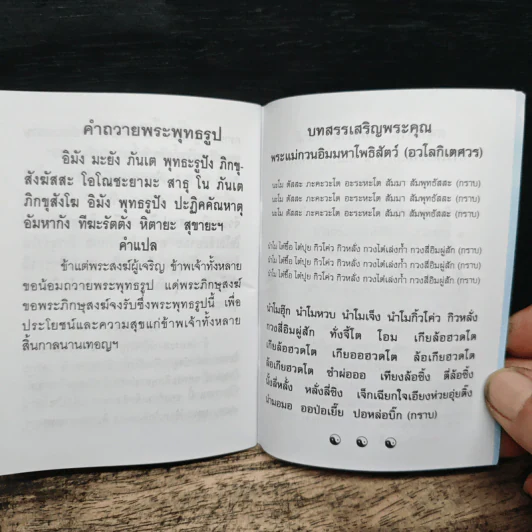 คำถวายพระพุทธรูป
อิมัง มะยัง ภันเต พุทธะรูปัง ภิกขุ-
สังฆัสสะ โอโณชะยามะ สาธุ โน ภันเต
ภิกขุสังโฆ อิมัง พุทธรูปัง ปะฏิคคัณหาตุ
อัมหากัง ทีฆะรัตตัง หิตายะ สุขายะฯ
คำแปล
ข้าแต่พระสงฆ์ผู้เจริญ ข้าพเจ้าทั้งหลาย
ขอน้อมถวายพระพุทธรูป แด่พระภิกษุสงฆ์
ขอพระภิกษุสงฆ์จงรับซึ่งพระพุทธรูปนี้ เพื่อ
ประโยชน์และความสุขแก่ข้าพเจ้าทั้งหลาย
สิ้นกาลนานเทอญฯ
บทสรรเสริญพระคุณ
พระแม่กวนอิมมหาโพธิสัตว์ (อวโลกิเตศวร)
นะโม ตัสสะ ภะคะวะโต อะระหะโต สัมมา สัมพุทธัสสะ (กราบ)
นะโม ตัสสะ ภะคะวะโต อะระหะโต สัมมา สัมพุทธัสสะ (กราบ)
นะโม ตัสสะ ภะคะวะโต อะระหะโต สัมมา สัมพุทธัสสะ (กราบ)
นำโม ไต่ชื้อ ไต่ปุย กิวโค่ว กิวหลั่ง กวงไต่เล่งก้ำ กวงสี่อิมผู่สัก (กราบ)
นำโม ไต่ชื้อ ไต่ปุย กิวโค่ว กิวหลั่ง กวงไต่เล่งก้ำ กวงสี่อิมผู่สัก (กราบ)
นำโม ไต่ชื้อ ไต่ปุย กิวโค่ว กิวหลั่ง กวงไต่เล่งก้ำ กวงสี่อิมผู่สัก (กราบ)
นำโมฮุ๊ก นำโมหวบ นำโมเจ็ง นำโมกิ้วโค่ว กิวหลั่ง
กวงสี่อิมผู่สัก ทั่งจี้โต โอม เกียล้อฮวดโต
เกียล้อฮวดโต เกียออฮวดโต ล้อเกียฮวดโต
ล้อเกียฮวดโต ซำผ่อออ เทียงล้อซิ้ง ตี่ล้อซิ้ง
นั้งลี่หลั่ง หลั่งลี่ซิง เจ็กเฉียกใจเอียงห่วยอุ่ยติ๊ง
นำมอมอ ออปัวเยี๊ย ปอหล่อบิ๊ก (กราบ)